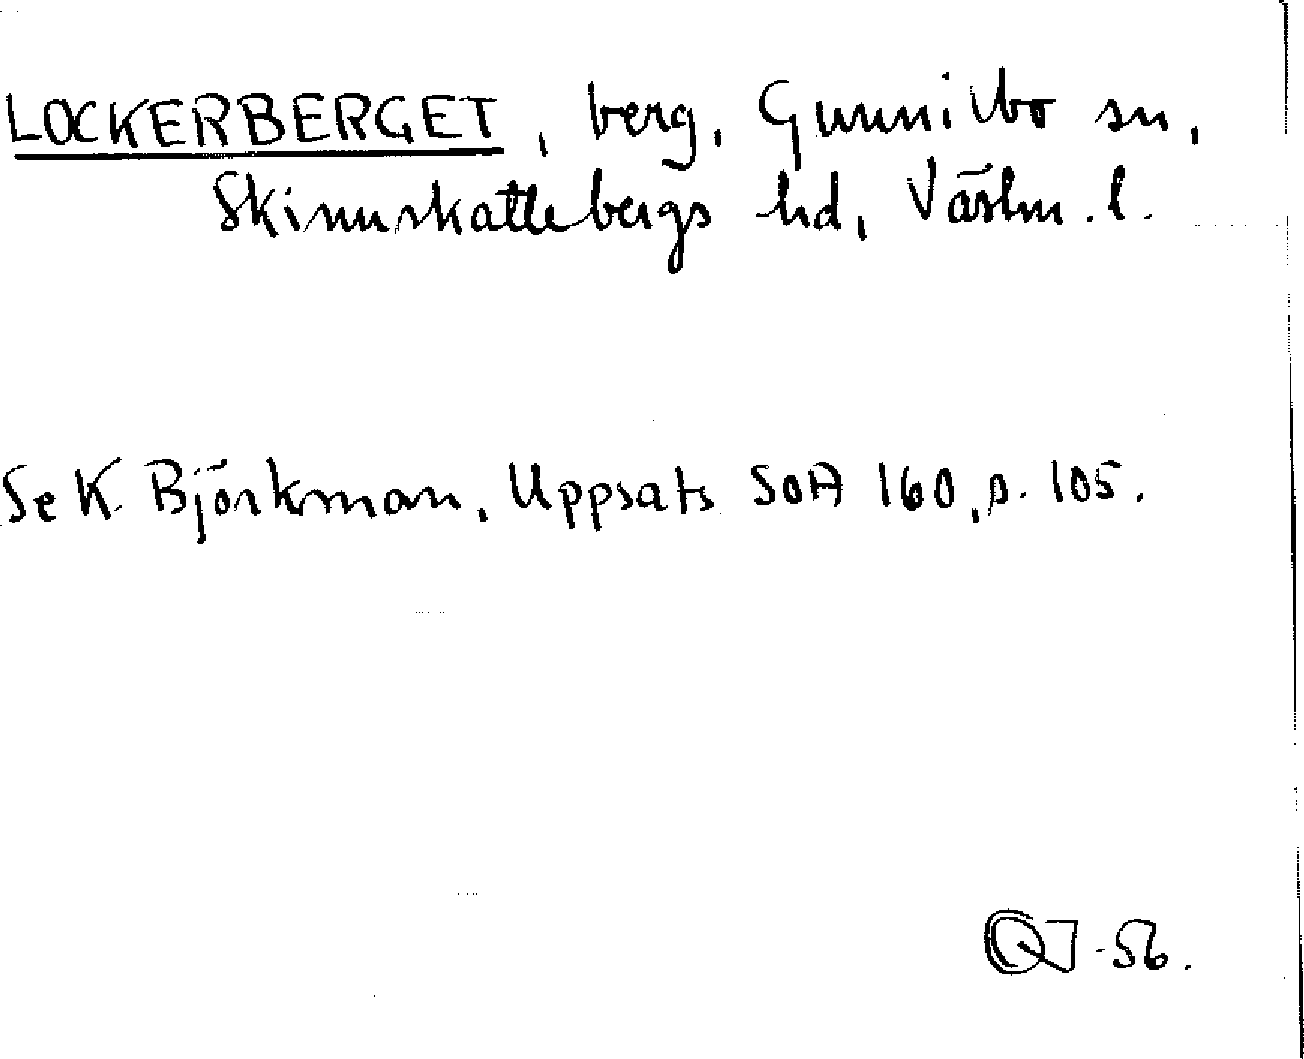 LOCKERBERGET, berg, Gunnilbo sn,
Skinnskattebergs hd, Västm. l.
Se K. Björkman, Uppsats SOA 160, s. 105.
-56.